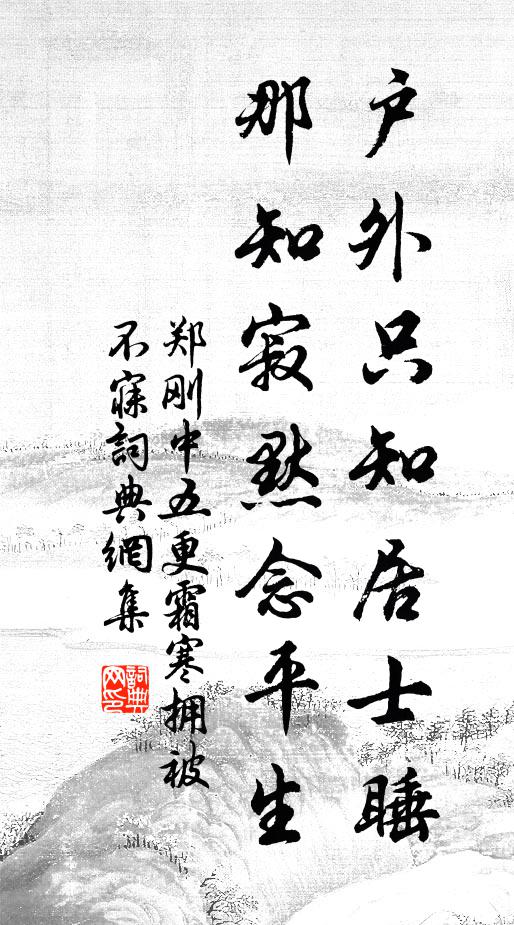 户外只知居士睡
那知寂默念平生
郑刚中五更霜寒拥被
不寐詞典網集
詞典
网印